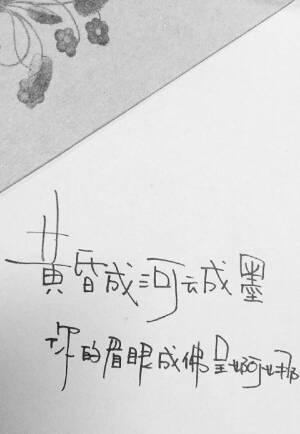 黄昏成河云成墨
你的眉眼成佛是婀娜